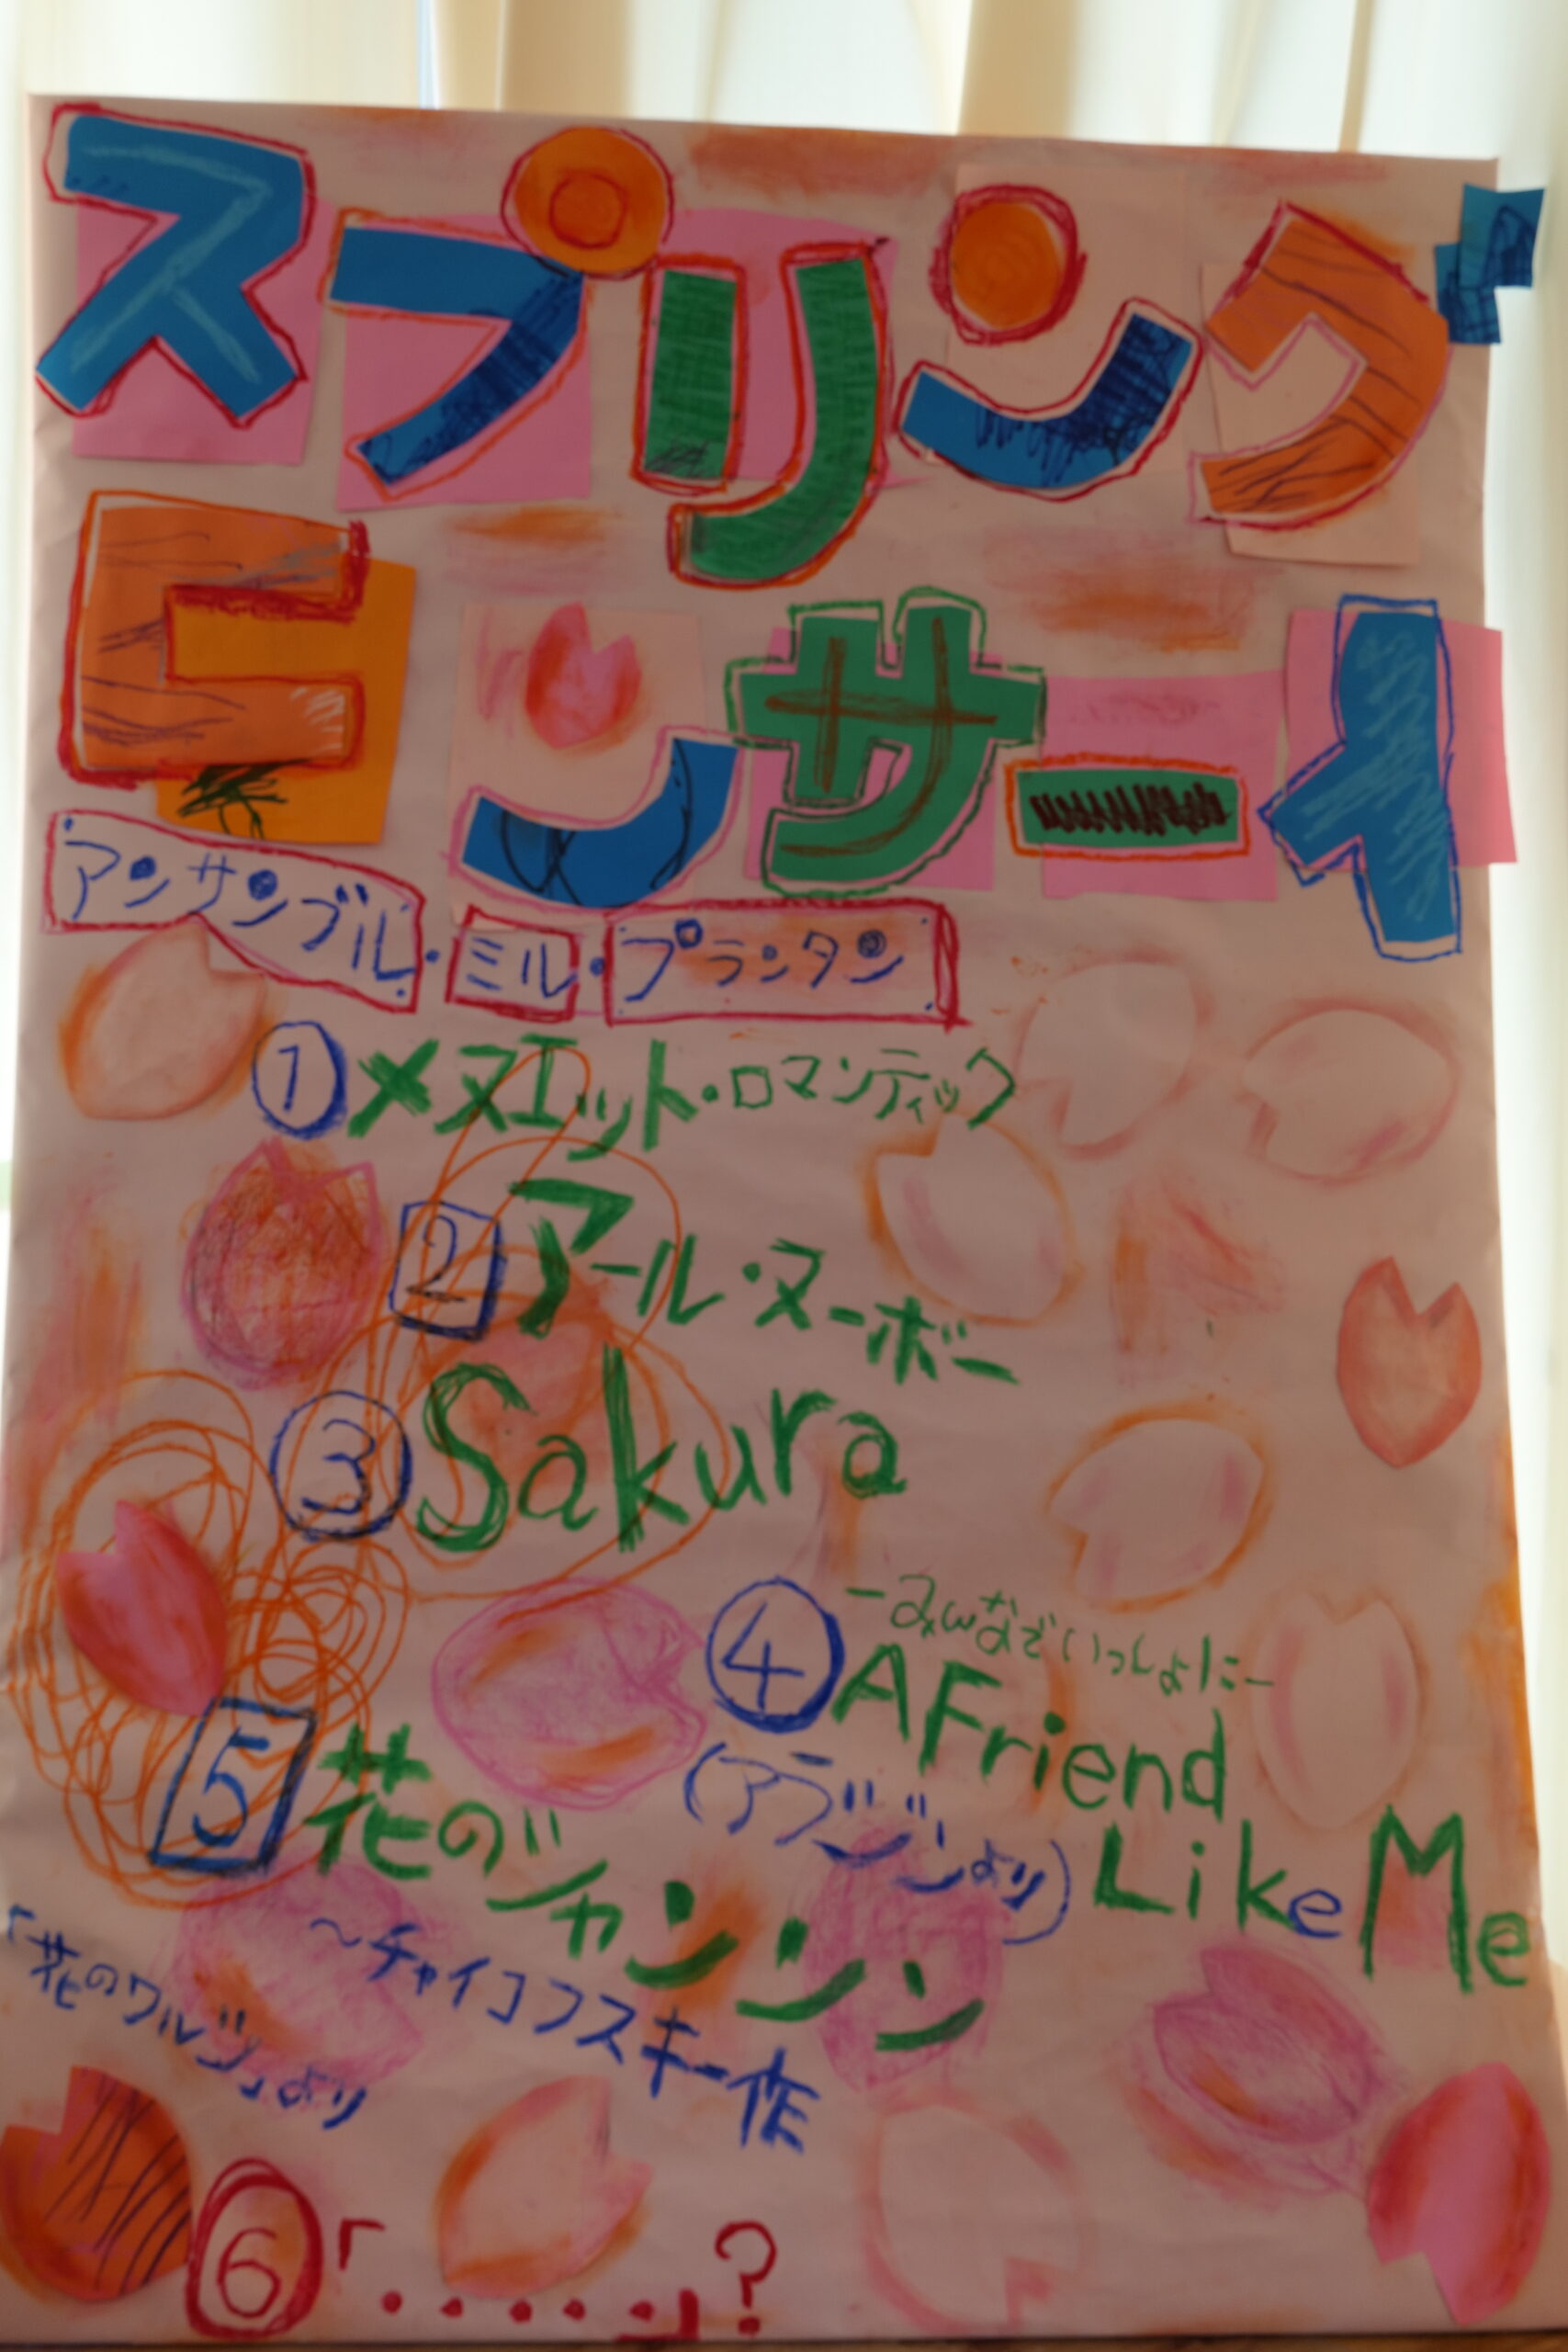 スプリング
コンサート
アンサンブル・ミル・プランタン
①メヌエット・ロマンティック
2 アール・ヌーボー
③ Sakura
ーみんなでいっしょにー
④ A Friend
Like Me
(アラジンより)
5 花のシャンソン
〜チャイコフスキー作
「花のワルツ」より
⑥「・・・・・」?